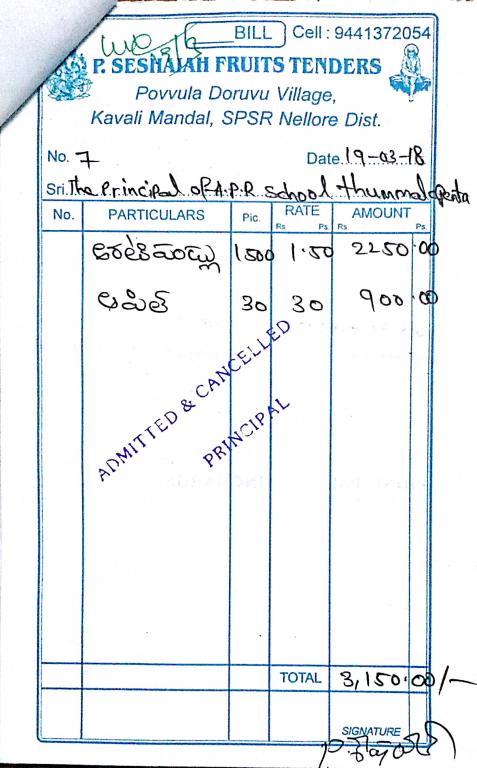 BILL Cell : 9441372054
P. SESHAIAH FRUITS TENDERS
Povvula Doruvu Village,
Kavali Mandal, SPSR Nellore Dist.
No. 7 Date. 19-03-18
Sri. The Principal of A.P.R School thummalapenta
No. PARTICULARS Pic. RATE AMOUNT
Rs Ps. Rs. Ps.
అరటిపండ్లు 1500 1.50 2250.00
ఆపిల్ 30 30 900.00
ADMITTED & CANCELLED
PRINCIPAL
TOTAL 3,150.00/-
SIGNATURE